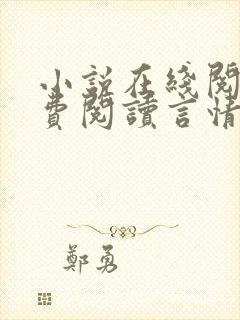 小說在綫閱
費閱讀言情
鄭勇